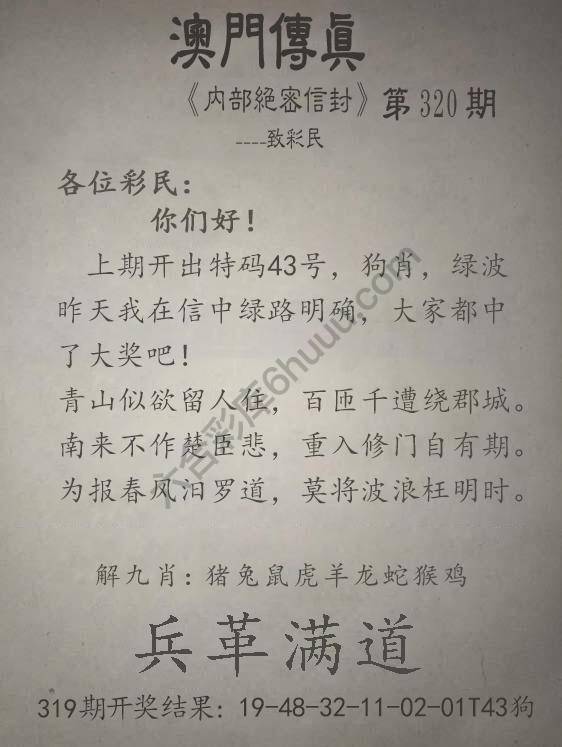 澳門傳眞
《内部絕密信封》第320期
----致彩民
各位彩民：
你们好！
上期开出特码43号，狗肖，绿波
昨天我在信中绿路明确，大家都中
了大奖吧！
青山似欲留人住，百匝千遭绕郡城。
南来不作楚臣悲，重入修门自有期。
为报春风汨罗道，莫将波浪枉明时。
六合彩库6huuu.com
解九肖：猪兔鼠虎羊龙蛇猴鸡
兵革满道
319期开奖结果：19-48-32-11-02-01T43狗